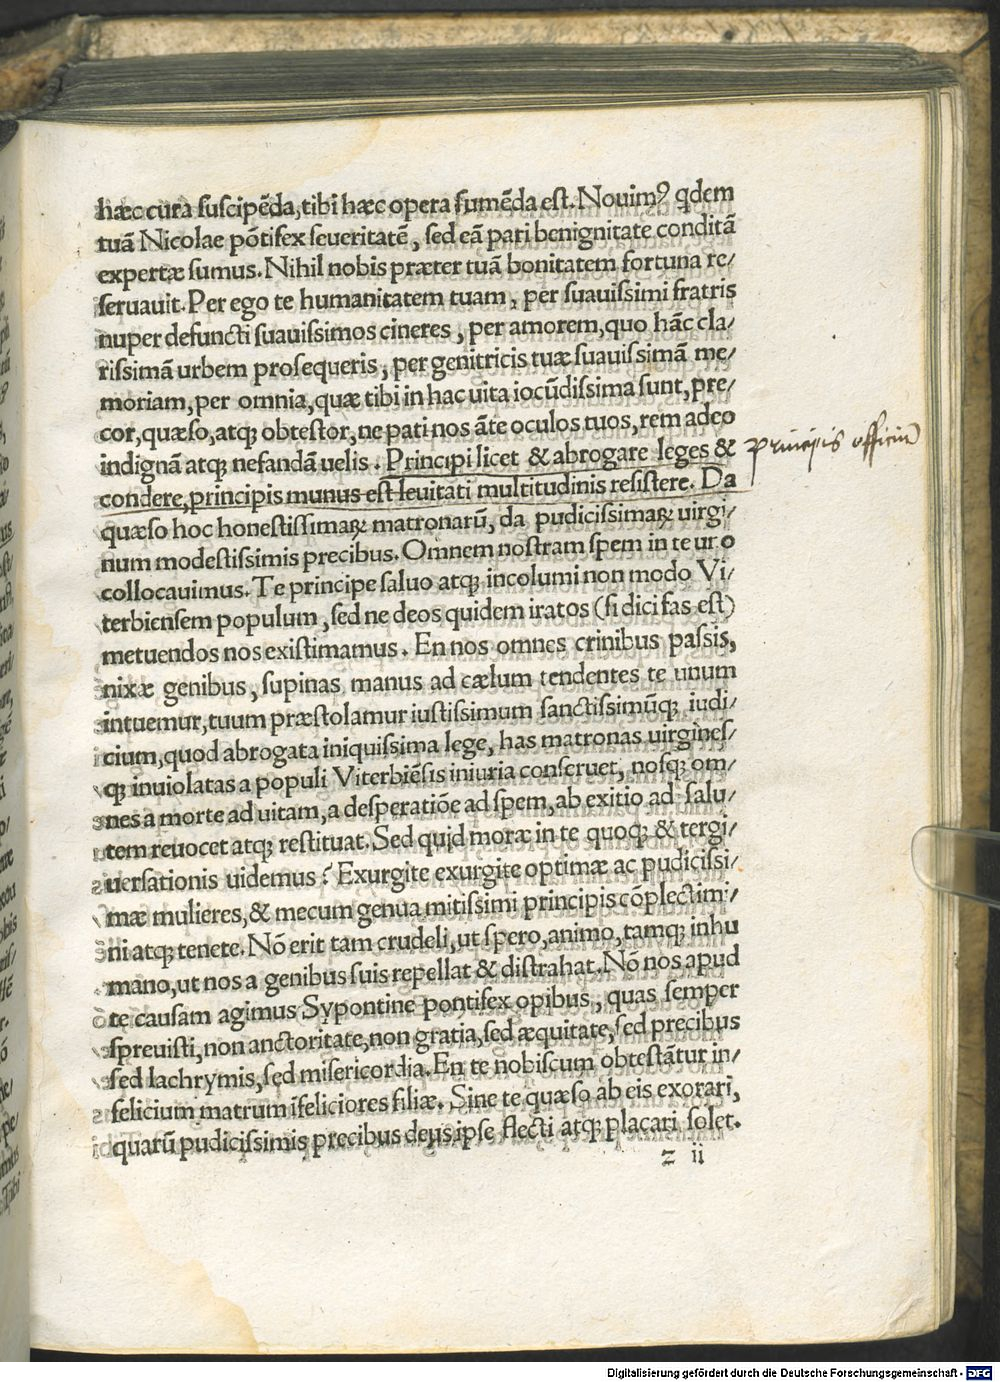 hæc cura suscipēda, tibi hæc opera sumēda est. Nouimꝰ qdem
tuā Nicolae pōtifex seueritatē, sed eā pati benignitate conditā
expertæ sumus. Nihil nobis præter tuā bonitatem fortuna re/
seruauit. Per ego te humanitatem tuam, per suauissimi fratris
nuper defuncti suauissimos cineres, per amorem, quo hāc cla/
rissimā urbem prosequeris, per genitricis tuæ suauissimā me/
moriam, per omnia, quæ tibi in hac uita iocūdissima sunt, pre/
cor, quæso, atqꝫ obtestor, ne pati nos āte oculos tuos, rem adeo
indignā atqꝫ nefandā uelis. Principi licet & abrogare leges &
principis officiū
condere, principis munus est leuitati multitudinis resistere. Da
quæso hoc honestissimaꝝ matronarū, da pudicissimaꝝ uirgi/
num modestissimis precibus. Omnem nostram spem in te uno
collocauimus. Te principe saluo atqꝫ incolumi non modo Vi/
terbiensem populum, sed ne deos quidem iratos (si dici fas est)
metuendos nos existimamus. En nos omnes crinibus passis,
nixæ genibus, supinas manus ad cælum tendentes te unum
intuemur, tuum præstolamur iustissimum sanctissimūqꝫ iudi/
cium, quod abrogata iniquissima lege, has matronas uirgines/
qꝫ inuiolatas a populi Viterbiēsis iniuria conseruet, nosqꝫ om/
nes a morte ad uitam, a desperatiōe ad spem, ab exitio ad salu/
tem reuocet atqꝫ restituat. Sed quid moræ in te quoqꝫ & tergi/
uersationis uidemus? Exurgite exurgite optimæ ac pudicissi/
mæ mulieres, & mecum genua mitissimi principis cōplectimi/
ni atqꝫ tenete. Nō erit tam crudeli, ut spero, animo, tamqꝫ inhu
mano, ut nos a genibus suis repellat & distrahat. Nō nos apud
te causam agimus Sypontine pontifex opibus, quas semper
spreuisti, non anctoritate, non gratia, sed æquitate, sed precibus
sed lachrymis, sed misericordia. En te nobiscum obtestātur in/
felicium matrum īfeliciores filiæ. Sine te quæso ab eis exorari,
quarū pudicissimis precibus deus ipse flecti atqꝫ placari solet.
z ii
Digitalisierung gefördert durch die Deutsche Forschungsgemeinschaft - DFG